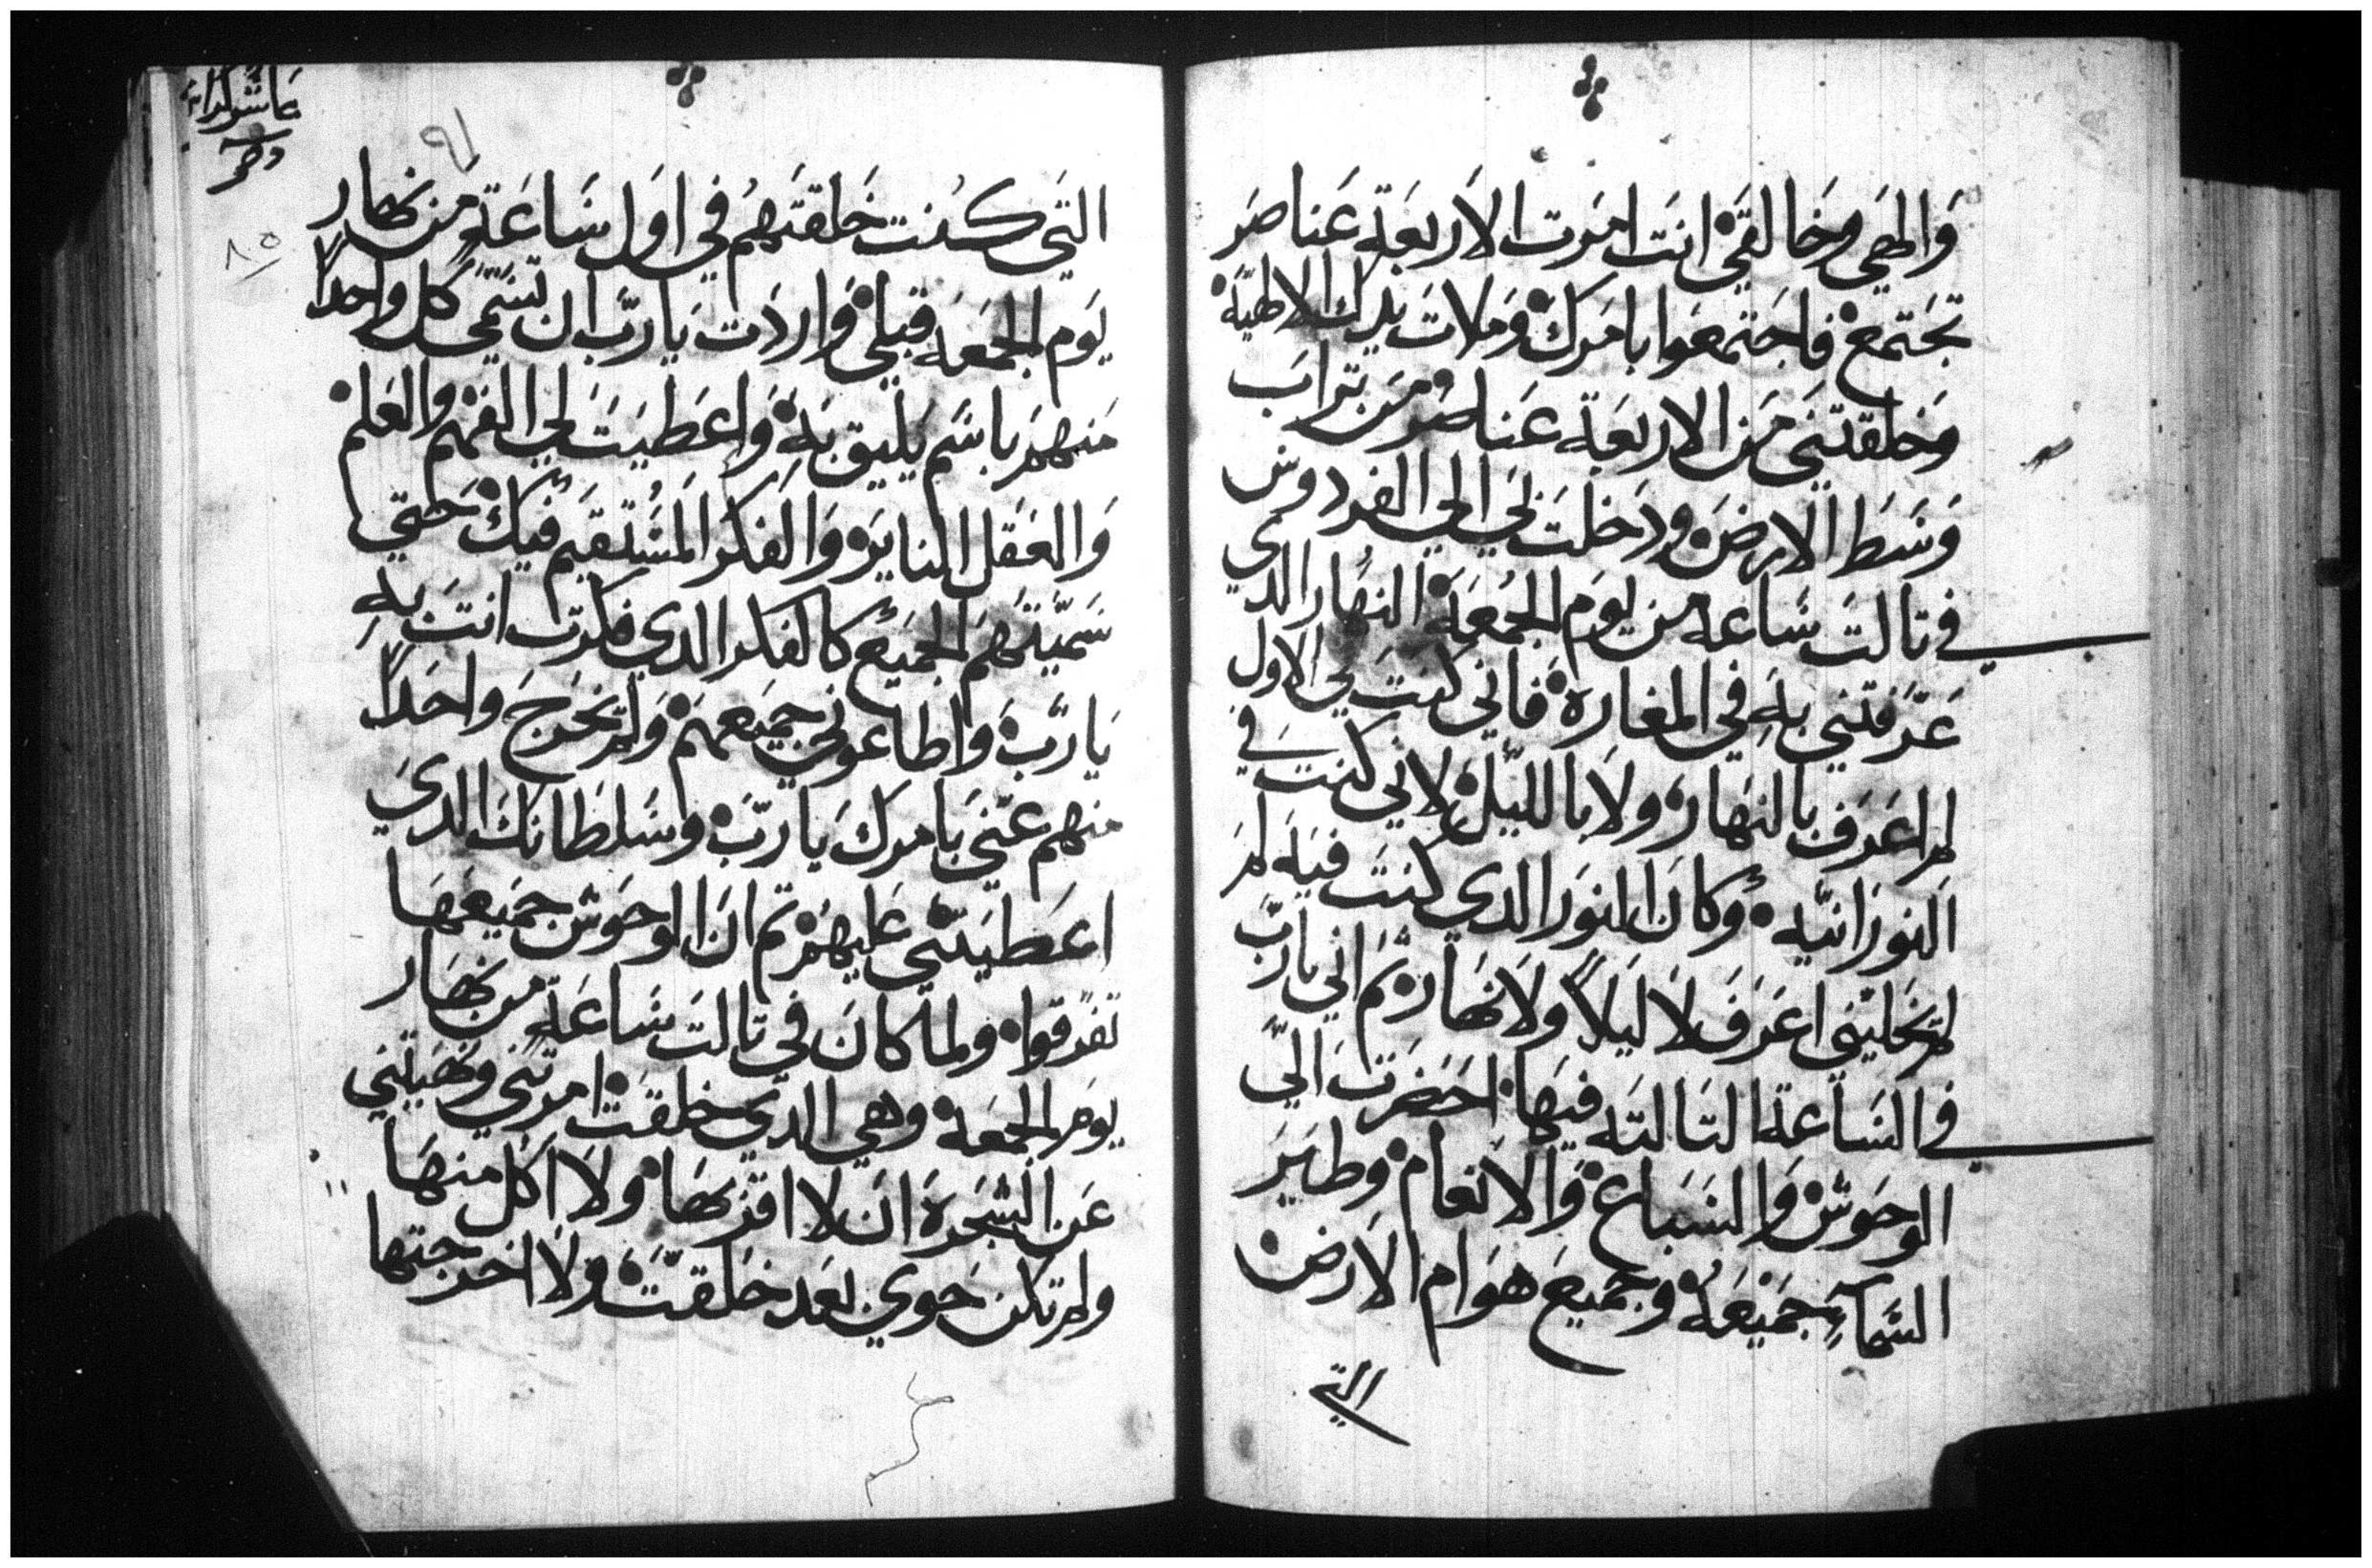 والهي وخالقي انت امرت الاربعة عناصر
تجتمع فاجتمعوا بامرك وملات يدك الالهية
وخلقتني من الاربعة عناصر من تراب
وسط الارض ودخلت بي الي الفردوس
في تالت ساعه من يوم الجمعة النهار الدي
عرفتني به في المغارة فاني كنت في الاول
لم اعرف بالنهار ولا بالليل لاني كنت في
النورانيه وكان النور الدي كنت فيه لم
تخليني اعرف لا ليلاً ولا نهار ثم اني يارب
في الساعة التالته فيها احضرت الي
الوحوش والسباع والانعام وطير
السمآء جميعه وجميع هوام الارض
التي
التي كنت خلقتهم في اول ساعة من نهار
يوم الجمعه قبلي واردت يارب ان تسمي كل واحداً
منهم باسم يليق به واعطيت لي الفهم والعلم
والعقل الناير والفكر المستقيم فيك حتي
سميتهم الجميع كالفكر الدي فكرت انت به
يارب واطاعوني جميعهم ولم تخرج واحداً
منهم عني بامرك يارب وسلطانك الدي
اعطيتني عليهم تم ان الوحوش جميعها
تفرقوا ولما كان في تالت ساعة من نهار
يوم الجمعة وهي الدي خلقت امرتني ونهيتني
عن الشجرة ان لا اقربها ولا اكل منها
ولم تكن حوي بعد خلقت ولا اخرجتها